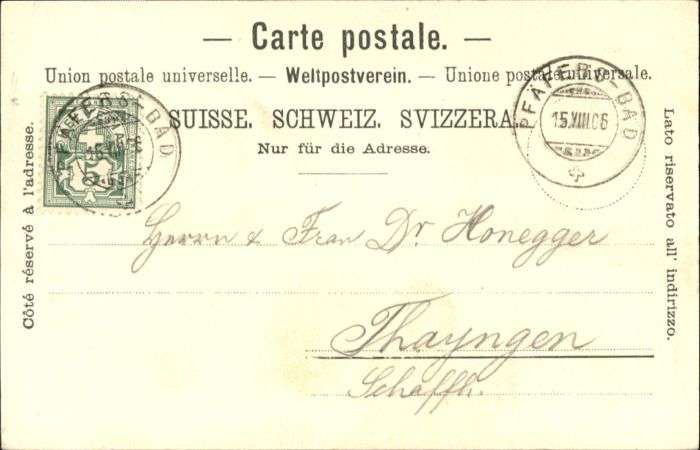 — Carte postale. —
Union postale universelle. — Weltpostverein. — Unione postale universale.
SUISSE. SCHWEIZ. SVIZZERA.
Nur für die Adresse.
Côté réservé à l'adresse.
Lato riservato all' indirizzo.
PFÄFERS-BAD
PFÄFERS-BAD
15.VIII.06
Herrn & Frau Dr Honegger
Thayngen
Schaffh.